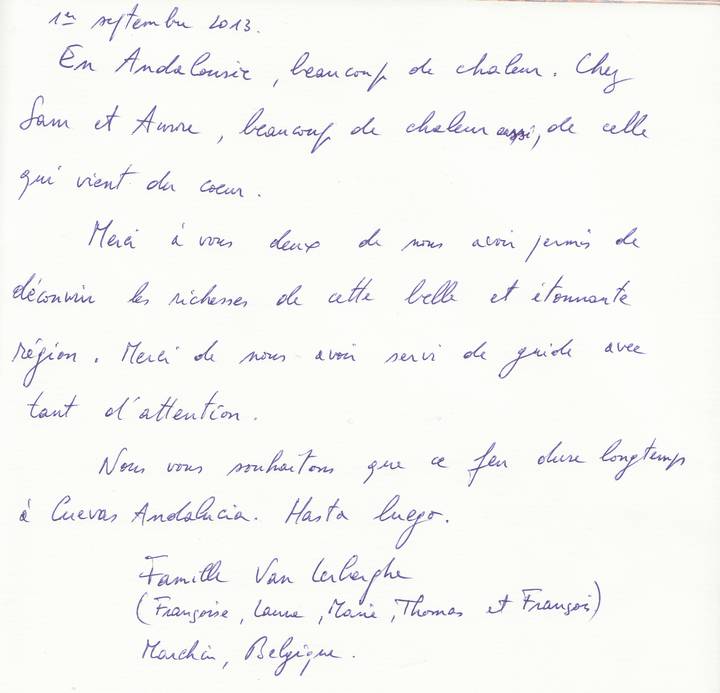 1er septembre 2013.
En Andalousie, beaucoup de chaleur. Chez
Sam et Aurore, beaucoup de chaleur aussi, de celle
qui vient du coeur.
Merci à vous deux de nous avoir permis de
découvrir les richesses de cette belle et étonnante
région. Merci de nous avoir servi de guide avec
tant d'attention.
Nous vous souhaitons que ce feu dure longtemps
à Cuevas Andalucia. Hasta luego.
Famille Van Lerberghe
(Françoise, Laura, Marie, Thomas et François)
Marchin, Belgique.